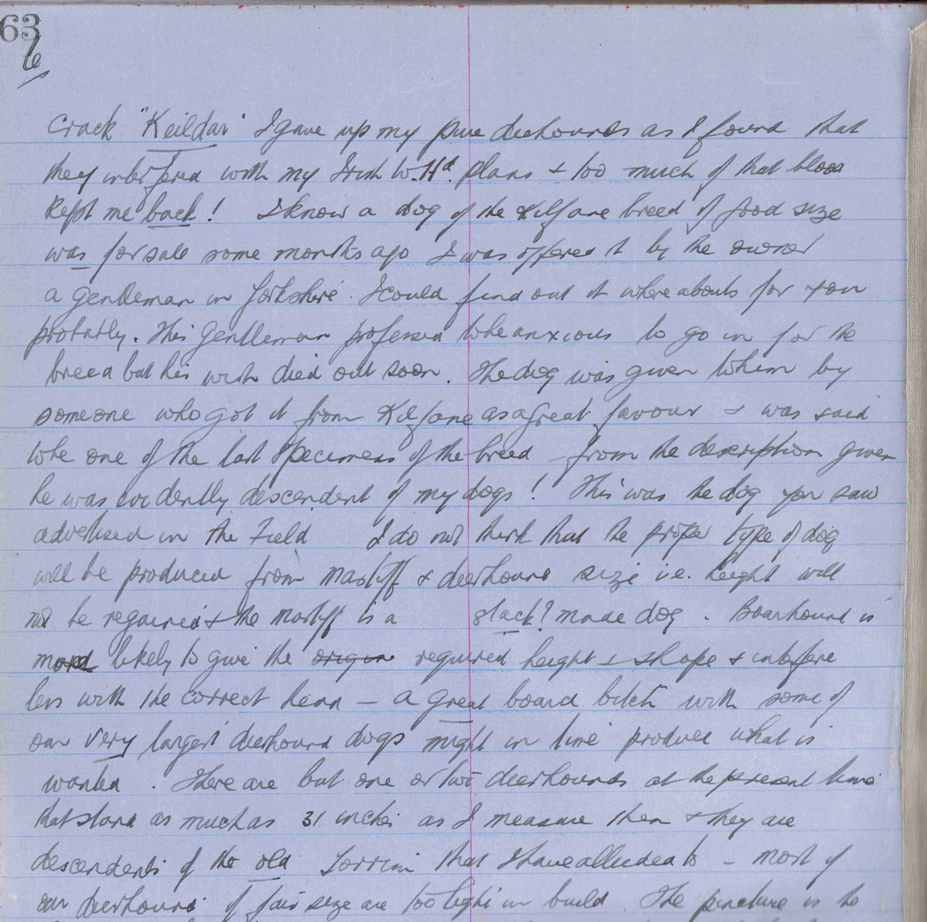 63
6
Crack "Keildar" I gave up my pure deerhounds as I found that
they interfered with my Irish W. Hd. plans & too much of that blood
kept me back! I know a dog of the Kilfane breed of good size
was for sale some months ago I was offered it by the owner
a gentleman in Yorkshire. I could find out it whereabouts for you
probably. This gentleman professed to be anxious to go in for the
breed but his wish died out soon. The dog was given to him by
someone who got it from Kilfane as a great favour & was said
to be one of the last specimens of the breed - from the description given
he was evidently descendent of my dogs! This was the dog you saw
advertised in the Field I do not think that the proper type of dog
will be produced from mastiff & deerhound size i.e. height will
not be regained & the mastiff is a slack? made dog. Boarhound is
more likely to give the origin required height & shape & interfere
less with the correct head - a great board bitch with some of
our very largest deerhound dogs might in time produce what is
wanted. There are but one or two deerhounds at the present time
that stand as much as 31 inches as I measure them & they are
descendents of the old Torrim that I have alluded to - most of
our deerhounds of fair size are too light in build. The is to